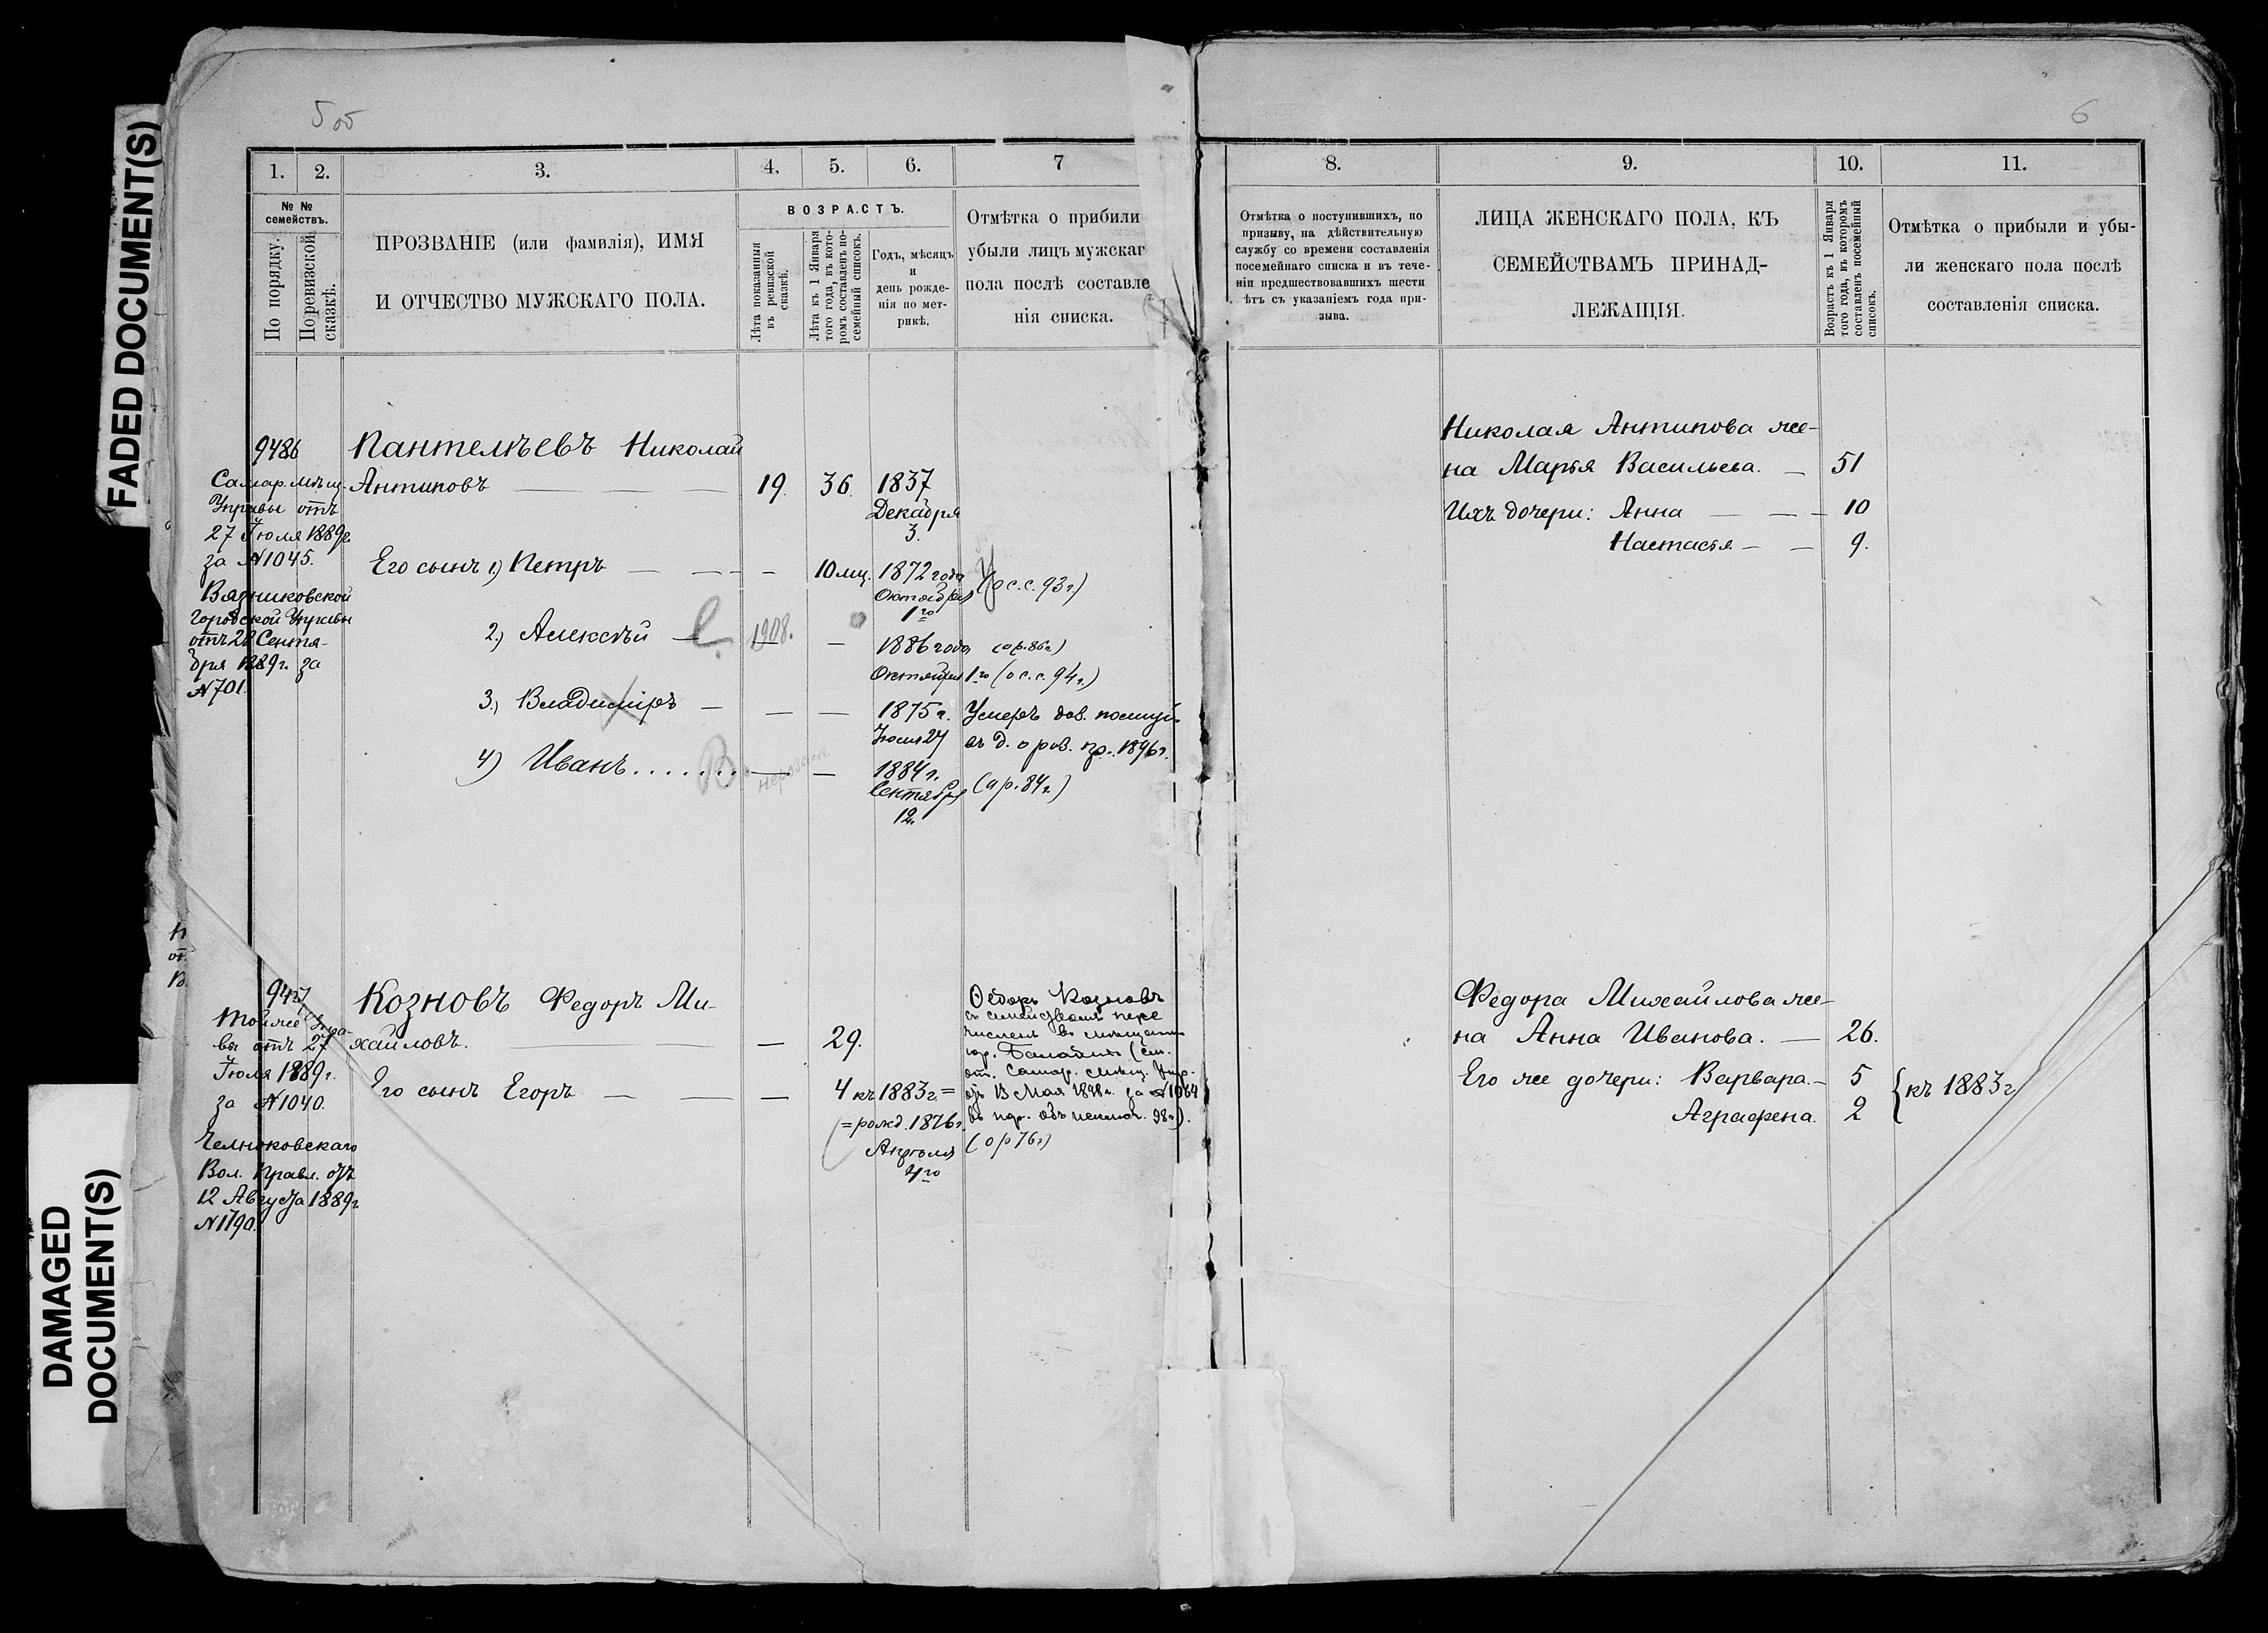 FADED DOCUMENT(S)
DAMAGED
DOCUMENT(S)
5 об
6
1. 2. 3. 4. 5. 6. 7
№ №
семействъ.
По порядку.
По ревизской
сказкѣ.
ПРОЗВАНІЕ (или фамилія), ИМЯ
И ОТЧЕСТВО МУЖСКАГО ПОЛА.
ВОЗРАСТЪ.
Лѣта показанныя
въ ревизской
сказкѣ.
Лѣта къ 1 Января
того года, въ кото-
ромъ составленъ по-
семейный списокъ.
Годъ, мѣсяцъ
и
день рожде-
нія по мет-
рикѣ.
Отмѣтка о прибыли
убыли лицъ мужскаг
пола послѣ составле
нія списка.
9486
Самар. мѣщ.
Управы отъ
27 Іюля 1889г.
за №1045.
Вязниковской
городской Управы
отъ 22 Сентя-
бря 1889г. за
№701.
Пантелѣевъ Николай
Антиповъ 19. 36. 1837
Декабря
3.
Его сынъ 1) Петръ 10 мц. 1872 года (о с.с. 93 г.)
Октября
1го
2) Алексѣй 1908. 1886 года (о р. 86 г.)
Октября 1го (о с.с. 94 г.)
3) Владиміръ 1875 г. Умеръ
Іюля 27 1896 г.
4) Иванъ 1884 г.
Сентября (о р. 84 г.)
12.
9487
Той же Упра-
вы отъ 27
Іюля 1889 г.
за №1040.
Челноковскаго
Вол. Правл. отъ
12 Августа 1889 г.
№1790.
Козновъ Федоръ Ми-
хайловъ. 29.
Его сынъ Егоръ 4 къ 1883 г. =
= рожд. 1876 г.
Апрѣля
4го
Ѳедоръ Козновъ
съ семействомъ пере
численъ въ мѣщане
гор. (см.
от. Самар. мѣщ. Упр.
отъ 13 Мая 1898 г. за №1064
98 г.).
(о р 76 г.)
8. 9. 10. 11.
Отмѣтка о поступившихъ, по
призыву, на дѣйствительную
службу со времени составленія
посемейнаго списка и въ тече-
ніи предшествовавшихъ шести
ѣтъ съ указаніемъ года при-
зыва.
ЛИЦА ЖЕНСКАГО ПОЛА, КЪ
СЕМЕЙСТВАМЪ ПРИНАД-
ЛЕЖАЩІЯ.
Возрастъ къ 1 Января
того года, въ которомъ
составленъ посемейный
списокъ.
Отмѣтка о прибыли и убы-
ли женскаго пола послѣ
составленія списка.
Николая Антипова же-
на Марья Васильева. 51
Ихъ дочери: Анна 10
Настасья 9.
Федора Михайлова же-
на Анна Иванова. 26.
Его же дочери: Варвара. 5 { къ 1883 г
Аграфена. 2